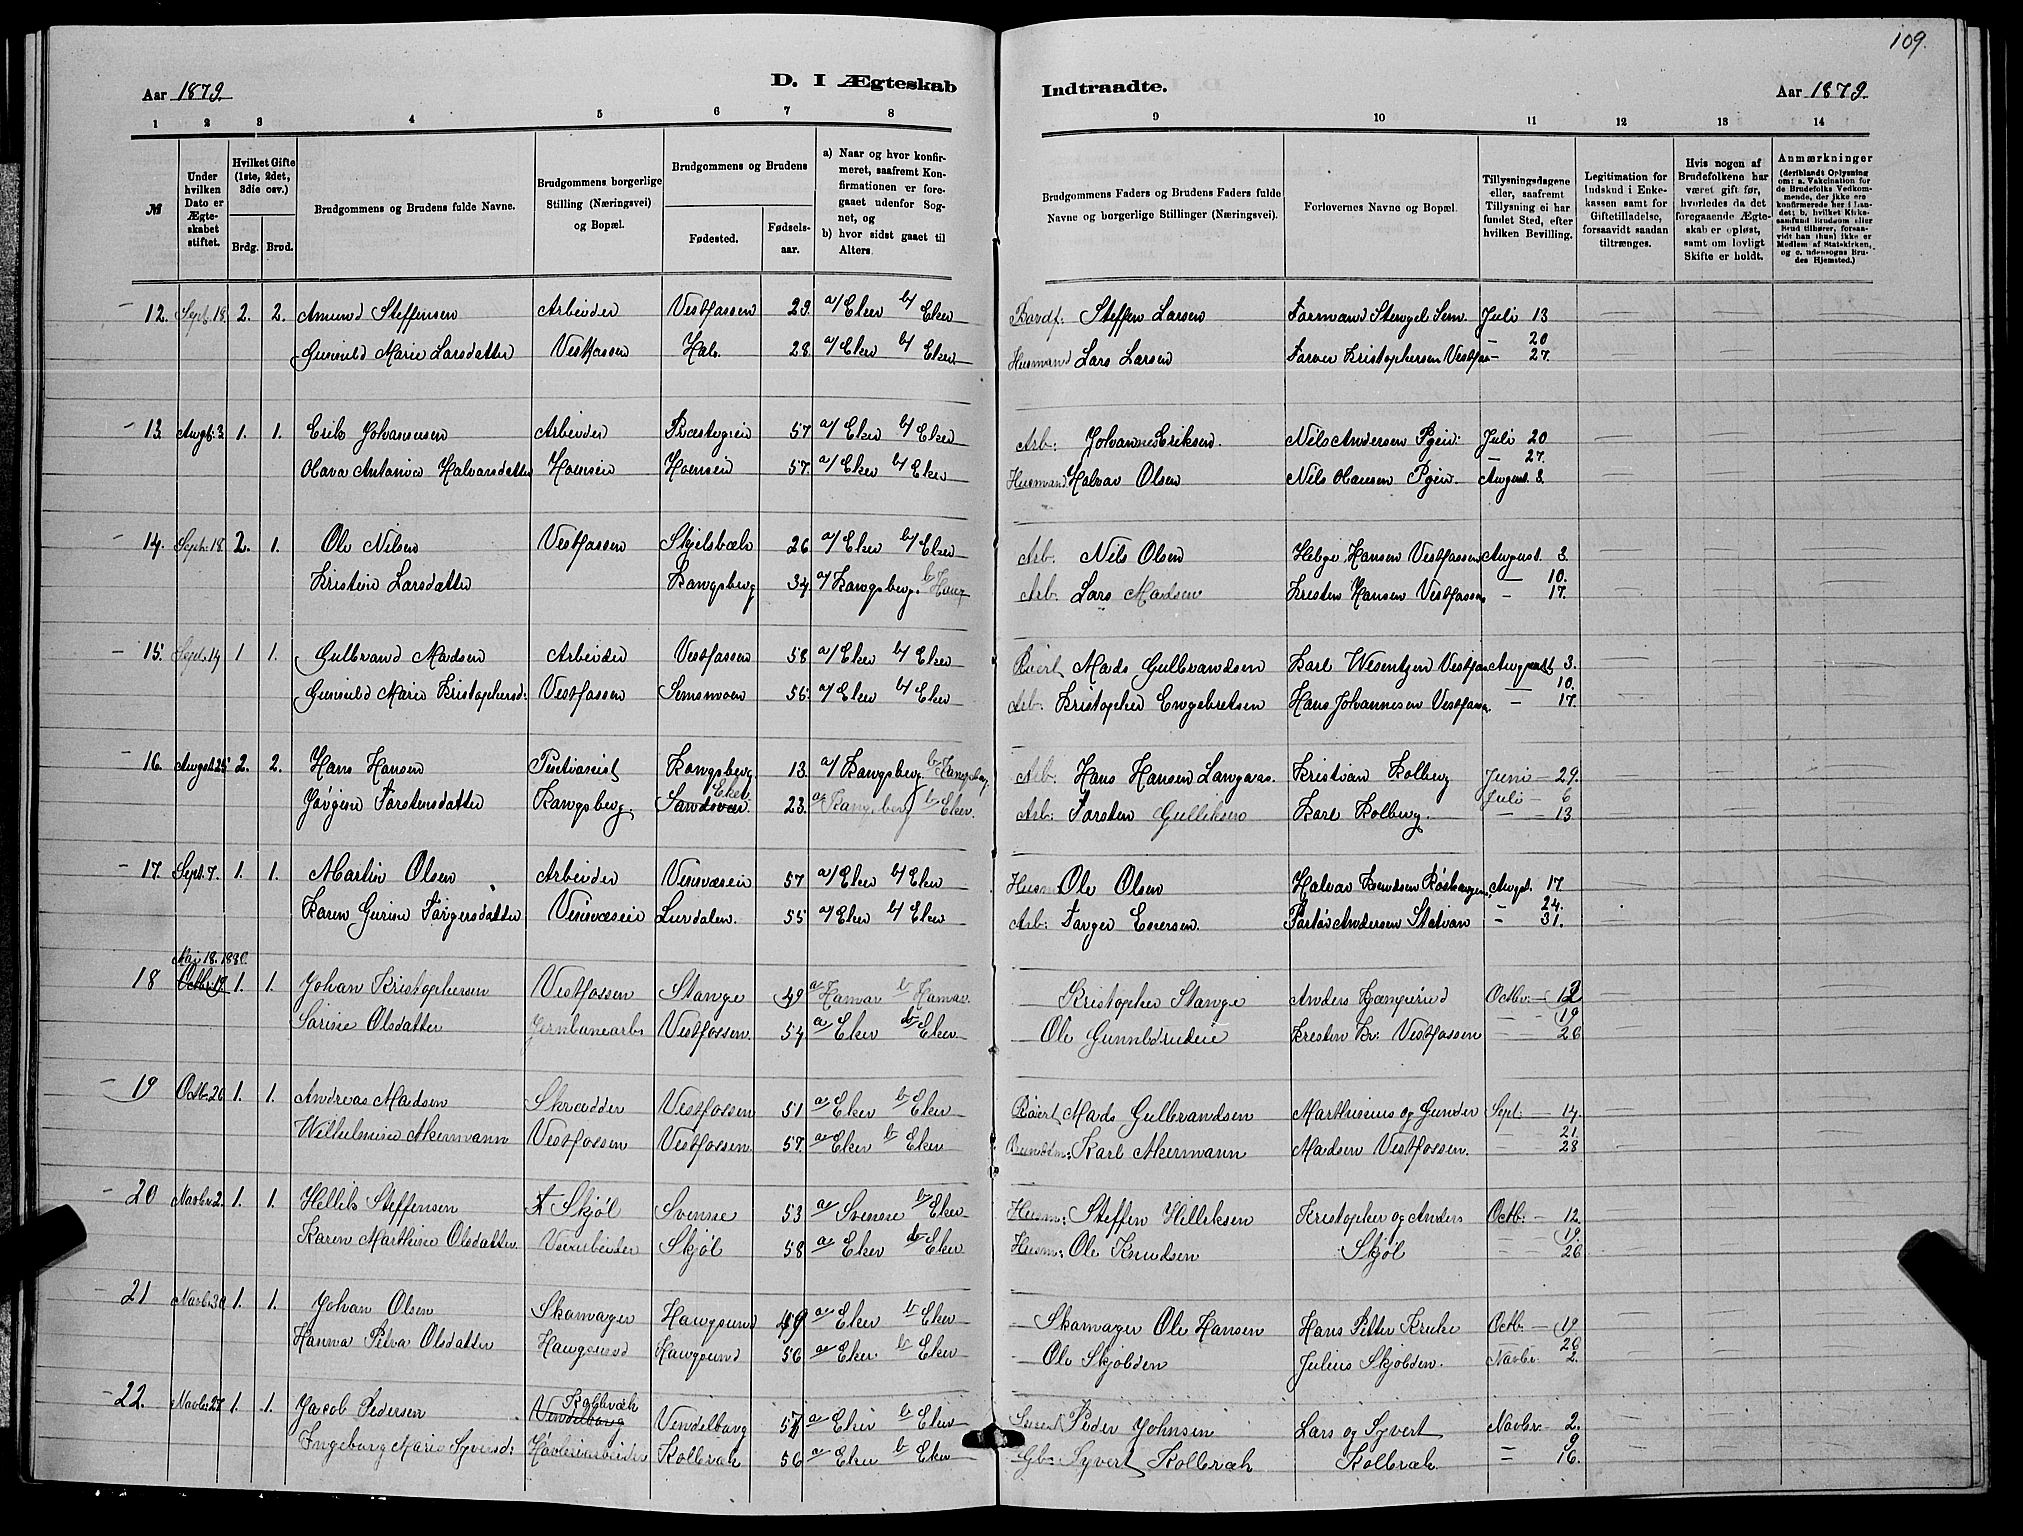 109.
Aar 1879. D. I Ægteskab Indtraadte. Aar 1879.
1 2 3 4 5 6 7 8 9 10 11 12 13 14
№
Under hvilken Dato er Ægteskabet stiftet.
Hvilket Gifte (1ste, 2det, 3die osv.)
Brdg. Brud.
Brudgommens og Brudens fulde Navne.
Brudgommens borgerlige Stilling (Næringsvei) og Bopæl.
Brudgommens og Brudens
Fødested. Fødselsaar.
a) Naar og hvor konfirmeret, saafremt Konfirmationen er foregaaet udenfor Sognet, og
b) hvor sidst gaaet til Alters.
Brudgommens Faders og Brudens Faders fulde Navne og borgerlige Stillinger (Næringsvei).
Forlovernes Navne og Bopæl.
Tillysningsdagene eller, saafremt Tillysning ei har fundet Sted, efter hvilken Bevilling.
Legitimation for Indskud i Enkekassen samt for Giftetilladelse, forsaavidt saadan tiltrænges.
Hvis nogen af Brudefolkene har været gift før, hvorledes da det foregaaende Ægteskab er opløst, samt om lovligt Skifte er holdt.
Anmærkninger (deriblandt Oplysning om: a. Vakcination for de Brudefolks Vedkommende, der ikke ere konfirmerede her i Landet; b. hvilket Kirkesamfund Brudgom eller Brud tilhører, forsaavidt han (hun) ikke er Medlem af Statskirken, og c. udensogns Brudes Hjemsted.)
12. Sept. 18 2. 2. Amund Steffensen Arbeider Vestfossen 29. a/ Eker b/ Eker Steffen Larsen Formand Stengel Sem. Juli 13
Gunild Marie Larsdatter Vestfossen Hals 28 a/ Eker b/ Eker Husmand Lars Larsen Farver Kristophersen Vestfos — 20 27.
13. Augst. 3. 1. 1. Erik Johannesen Arbeider Præstegrein 57 a/ Eker b/ Eker Arb: Johannes Eriksen. Nils Andersen Juli 20
Olava Antonia Halvorsdatter Hoensein Hoensein 57. a/ Eker b/ Eker Husmand Halvor Olsen Nils Hansen — 27. August 3.
14. Sept. 18. 2. 1. Ole Nilsen Vestfossen Skjelsbæk 26 a/ Eker b/ Eker Arb. Nils Olsen Helge Hansen Vestfossen August 3.
Kristine Larsdatter Kongsberg 34 a/ Kongsberg. b/ Haug Arb. Lars Madsen Kristen Hansen Vestfossen — 10. — 17.
15. Sept. 14 1 1. Gulbrand Madsen Arbeider Vestfossen 58 a/ Eker b/ Eker Mads Gulbrandsen Karl Wesentzen Vestfos August 3.
Gunild Marie Kristophersd: Vestfossen Semsmoen 56 a/ Eker b/ Eker Arb: Kristopher Engebretsen Hans Johannesen Vestfoss. — 10. — 17.
16. Augst. 25 2. 2. Hans Hansen Kongsberg 13. a/ Kongsberg b/ Kongsberg Arb. Hans Hansen Langaas. Kristian Kolberg Juni — 29.
Jørgine Torstensdatter Kongsberg. Sandsvær Eker 23. a/ Kongsberg b/ Eker. Arb: Torsten Gulliksen Karl Kolberg. Juli — 6 — 13
17. Sept. 7. 1. 1. Martin Olsen Arbeider 57 a/ Eker b/ Eker Husm. Ole Olsen Halvor Knudsen Augst. 17.
Karen Gurine Torgersdatter Lurdalen. 55 a/ Eker b/ Eker Arb: Torger Eversen. Andersen — 24. — 31.
Mai 18. 1880.
18 Octbr. 19. 1. 1. Johan Kristophersen Vestfossen Stange 49 a/ Hamar b/ Hamar. Kristopher Stange Anders Octbr. — 12
Sorine Olsdatter Jernbanearb. Vestfossen. 54 a/ Eker b/ Eker Ole Kresten Kr: Vestfossen — 19 — 26
19 Octb. 26 1. 1. Andreas Madsen Skrædder Vestfossen 51 a/ Eker b/ Eker Mads Gulbrandsen Marthinius og Gunder Sept. — 14.
Wilhelmine Akermann Vestfossen Vestfossen 57. a/ Eker b/ Eker Karl Akermann Madsen Vestfossen. — 21. — 28
20 Novbr. 2. 1. 1. Hellik Steffensen Skjøl Svenne 53 a/ Svenne b/ Eker Husm: Steffen Helliksen Kristopher og Anders Octb. — 12.
Karen Marthine Olsdatter. Skjøl 58 a/ Eker b/ Eker Husm: Ole Knudsen Skjøl — 19. — 26
21 Novbr. 30 1. 1. Johan Olsen Skomager Hougsund 49 a/ Eker b/ Eker Skomager Ole Hansen Hans Petter Kruke Octb. — 19
Hanna Petra Olsdatter Hougsund Hougsund 56 a/ Eker. b/ Eker Ole Skjøbden Julius Skjøbden. — 26 Novbr. 2.
22. Novbr. 27 1. 1. Jacob Pedersen Kolbræk Vendelborg Vendelborg 57 a/ Eker b/ Eker Peder Johnsen Lars og Syvert Novbr. — 2.
Ingeborg Marie Syversd: Høvleriarbeider Kolbræk 56 a/ Eker b/ Eker Gbr: Syvert Kolbræk Kolbræk. — 9 — 16.